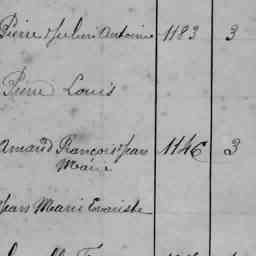 Pierre Julien Antoine 1183 3
Pierre Louis
Amand François Jean 1146 3
Marie
Jean Marie Evariste